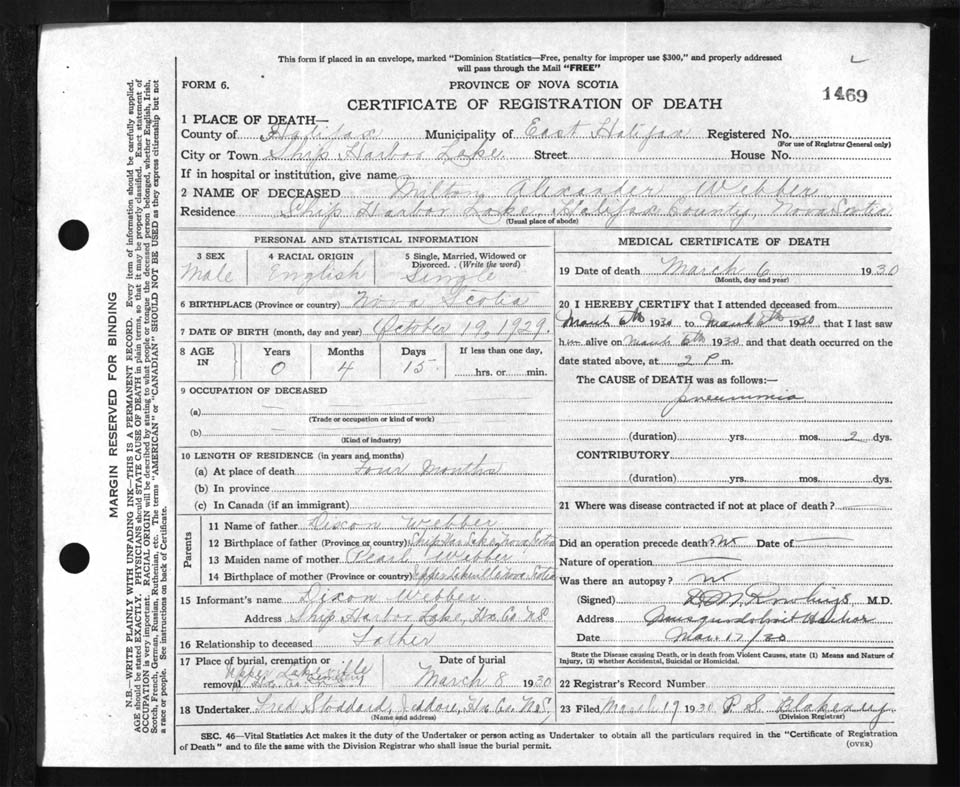 This form if placed in an envelope, marked "Dominion Statistics—Free, penalty for improper use $300," and properly addressed
will pass through the Mail "FREE"
FORM 6.
PROVINCE OF NOVA SCOTIA
1469
CERTIFICATE OF REGISTRATION OF DEATH
1 PLACE OF DEATH—
County of Halifax Municipality of East Halifax Registered No.
(For use of Registrar General only)
City or Town Ship Harbor Lake Street House No.
If in hospital or institution, give name
2 NAME OF DECEASED Milton Alexander Webber
Residence Ship Harbor Lake, Halifax County, Nova Scotia
(Usual place of abode)
PERSONAL AND STATISTICAL INFORMATION
3 SEX Male
4 RACIAL ORIGIN English
5 Single, Married, Widowed or Divorced. . (Write the word) Single
6 BIRTHPLACE (Province or country) Nova Scotia
7 DATE OF BIRTH (month, day and year) October 19, 1929.
8 AGE IN Years 0 Months 4 Days 15 If less than one day, hrs. or min.
9 OCCUPATION OF DECEASED
(a) —
(Trade or occupation or kind of work)
(b) —
(Kind of industry)
10 LENGTH OF RESIDENCE (in years and months)
(a) At place of death Four Months
(b) In province
(c) In Canada (if an immigrant)
Parents
11 Name of father Dixon Webber
12 Birthplace of father (Province or country) Ship Har Lake, Nova Scotia
13 Maiden name of mother Pearl Webber
14 Birthplace of mother (Province or country) Upper Lakeville Nova Scotia
15 Informant's name Dixon Webber
Address Ship Harbor Lake, Hx. Co. N.S
16 Relationship to deceased Father
17 Place of burial, cremation or removal Upper Lakeville Cemetery Hx. Co.
Date of burial March 8 1930
18 Undertaker Fred Stoddard, Jeddore, Hx. Co. N.S,
(Name and address)
MEDICAL CERTIFICATE OF DEATH
19 Date of death March 6 1930
(Month, day and year)
20 I HEREBY CERTIFY that I attended deceased from
March 5th 1930 to March 5th 1930 that I last saw
him alive on March 6th 1930 and that death occurred on the
date stated above, at 2 P.m.
The CAUSE of DEATH was as follows:—
pneumonia
(duration) yrs. mos. 2 dys.
CONTRIBUTORY
(duration) yrs. mos. dys.
21 Where was disease contracted if not at place of death? —
Did an operation precede death? no Date of —
Nature of operation —
Was there an autopsy? no
(Signed) Rowlings M.D.
Address Musquodoboit Harbor
Date Mar. 17/30
State the Disease causing Death, or in death from Violent Causes, state (1) Means and Nature of
Injury, (2) whether Accidental, Suicidal or Homicidal.
22 Registrar's Record Number
23 Filed March 19 1930 P. S. Blakeney
(Division Registrar)
SEC. 46—Vital Statistics Act makes it the duty of the Undertaker or person acting as Undertaker to obtain all the particulars required in the "Certificate of Registration
of Death" and to file the same with the Division Registrar who shall issue the burial permit.
(OVER)
MARGIN RESERVED FOR BINDING
N.B.—WRITE PLAINLY WITH UNFADING INK—THIS IS A PERMANENT RECORD. Every item of information should be carefully supplied.
AGE should be stated EXACTLY. PHYSICIANS should STATE CAUSE OF DEATH in plain terms, so that it may be properly classified. Exact statement of
OCCUPATION is very important. RACIAL ORIGIN will be described by stating to what people or tongue the deceased person belonged, whether English, Irish,
Scotch, French, German, Russian, Ruthenian, etc. The terms "AMERICAN" or "CANADIAN" SHOULD NOT BE USED as they express citizenship but not
a race or people. See instructions on back of Certificate.